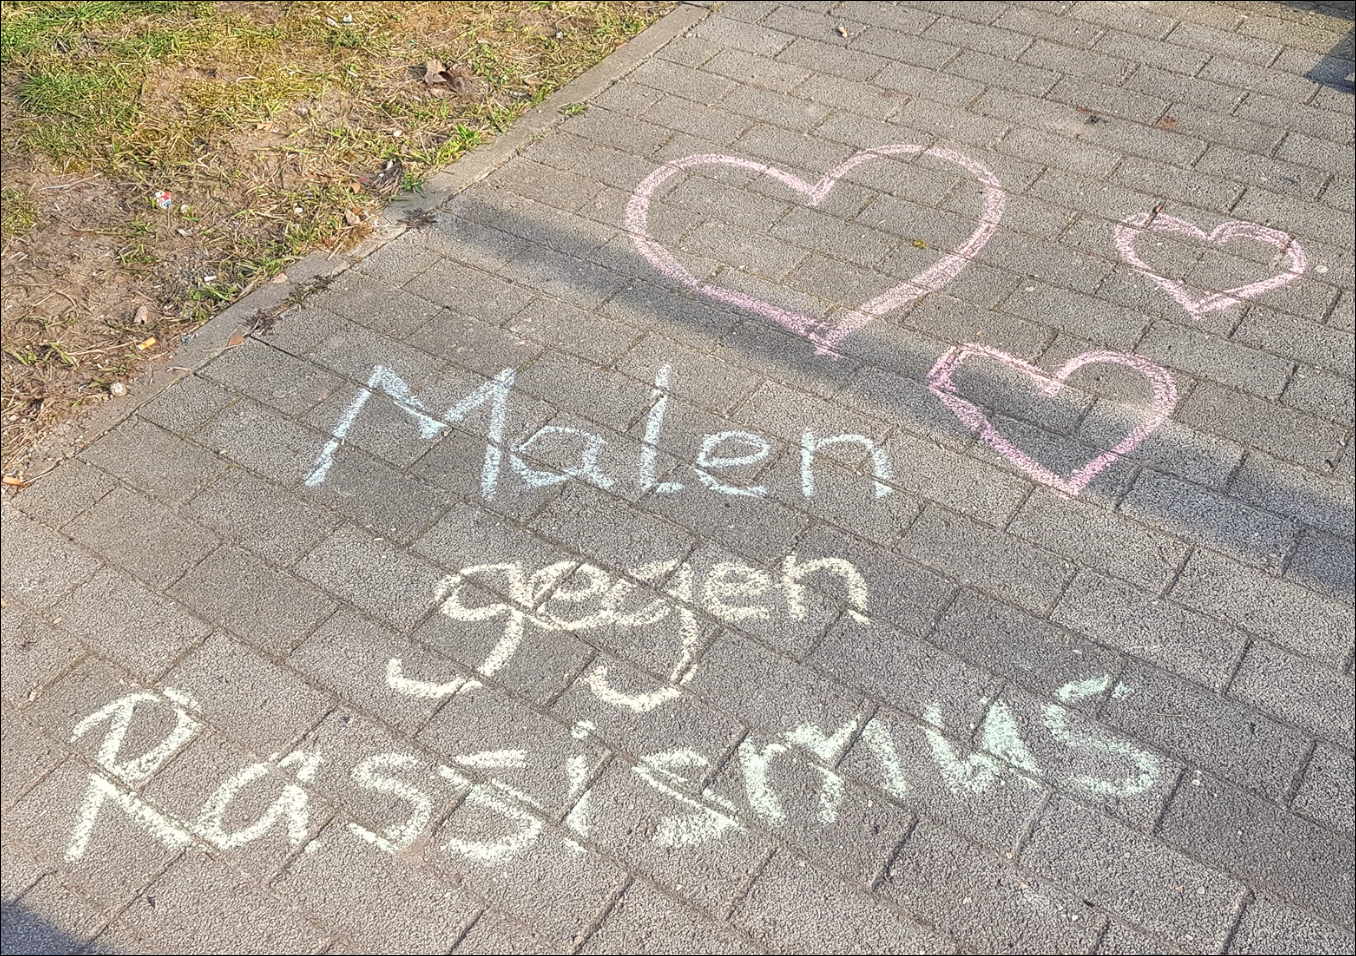 Malen
gegen
Rassismus